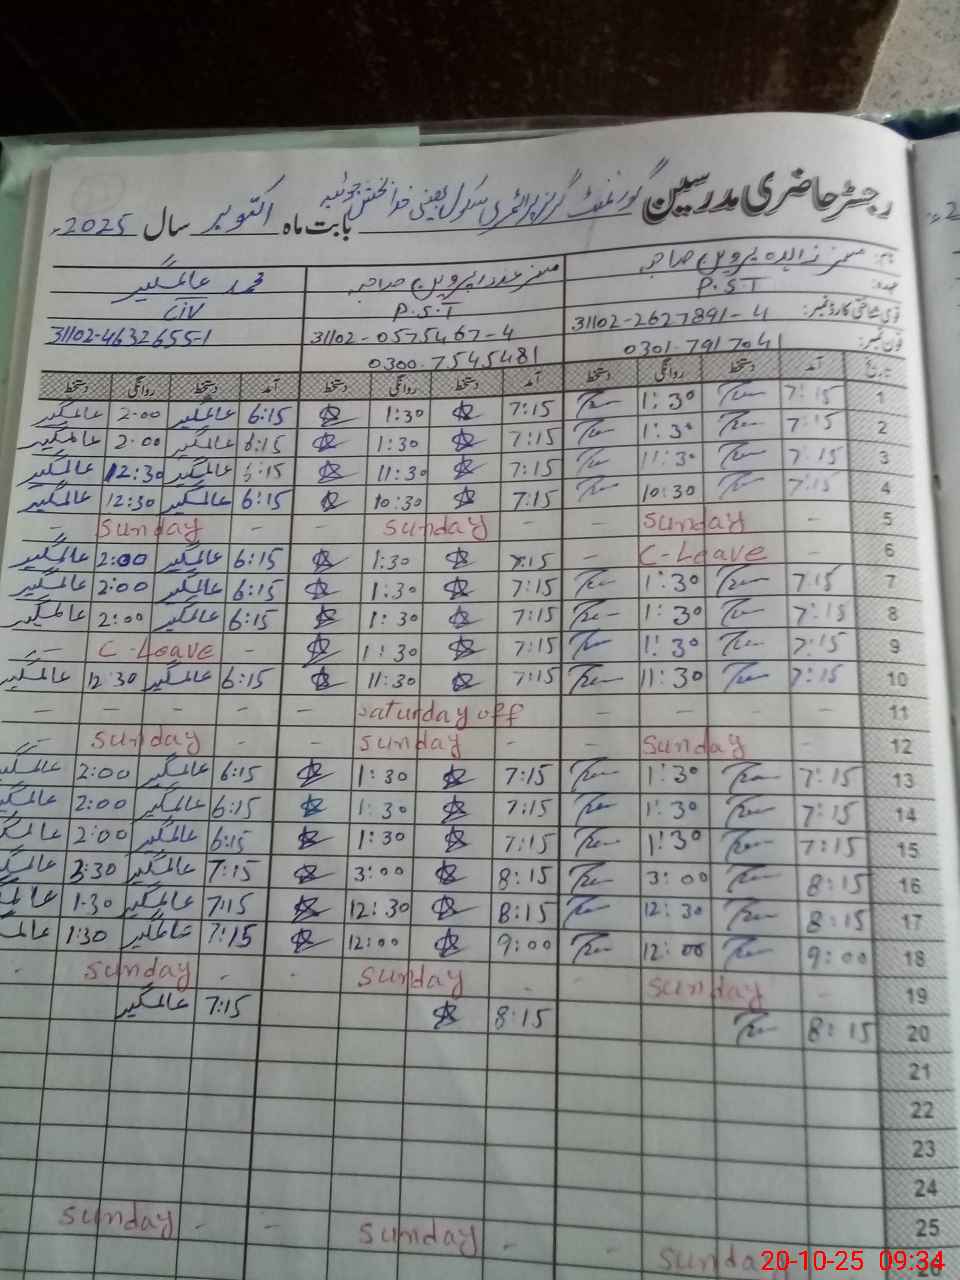 رجسٹر حاضری مدرسین گورنمنٹ گرلز پرائمری سکول بستی خدا بخش جوئیہ بابت ماہ اکتوبر سال 2025ء
نام: مسز زاہدہ پروین صاحبہ مسز عذرا پروین صاحبہ محمد عالمگیر
عہدہ: P.S.T P.S.T CIV
قومی شناختی کارڈ نمبر: 31102-2627891-4 31102-0575467-4 31102-4632655-1
فون نمبر: 0301.7917041 0300.7545481
تاریخ آمد دستخط روانگی دستخط آمد دستخط روانگی دستخط آمد دستخط روانگی دستخط
1 7:15 1:30 7:15 1:30 6:15 عالمگیر 2:00 عالمگیر
2 7:15 1:30 7:15 1:30 6:15 عالمگیر 2:00 عالمگیر
3 7:15 11:30 7:15 11:30 6:15 عالمگیر 12:30 عالمگیر
4 7:15 10:30 7:15 10:30 6:15 عالمگیر 12:30 عالمگیر
5 - Sunday - Sunday - - Sunday -
6 - C-Leave - 7:15 1:30 6:15 عالمگیر 2:00 عالمگیر
7 7:15 1:30 7:15 1:30 6:15 عالمگیر 2:00 عالمگیر
8 7:15 1:30 7:15 1:30 6:15 عالمگیر 2:00 عالمگیر
9 7:15 1:30 7:15 1:30 - C-Leave -
10 7:15 11:30 7:15 11:30 6:15 عالمگیر 12:30 عالمگیر
11 - - - - Saturday off - - - - - -
12 - Sunday - - Sunday - - Sunday -
13 7:15 1:30 7:15 1:30 6:15 عالمگیر 2:00 عالمگیر
14 7:15 1:30 7:15 1:30 6:15 عالمگیر 2:00 عالمگیر
15 7:15 1:30 7:15 1:30 6:15 عالمگیر 2:00 عالمگیر
16 8:15 3:00 8:15 3:00 7:15 عالمگیر 3:30 عالمگیر
17 8:15 12:30 8:15 12:30 7:15 عالمگیر 1:30 عالمگیر
18 9:00 12:00 9:00 12:00 7:15 عالمگیر 1:30 عالمگیر
19 - Sunday - - Sunday - - Sunday -
20 8:15 8:15 7:15 عالمگیر
21
22
23
24
25
26 Sunday - - Sunday - - Sunday
20-10-25 09:34